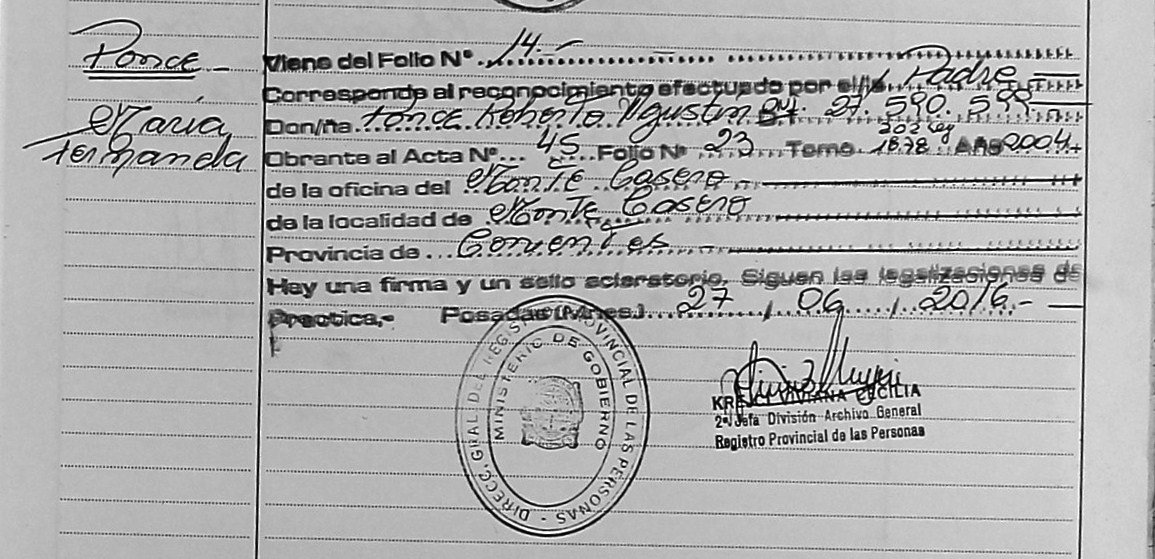 Ponce
María
Fernanda
Viene del Folio Nº 14.-
Corresponde al reconocimiento efectuado por el/la Padre
Don/ña Ponce Roberto Agustín 27.590.599
Obrante al Acta Nº... 45 Folio Nº 23 Tomo 2026 ley 18.78 Año 2.004
de la oficina del Monte Casero
de la localidad de Monte Casero
Provincia de... Corrientes
Hay una firma y un sello aclaratorio. Siguen las legalizaciones de
Practica.- Posadas (Mnes.) 27 / 06 / 2016.-
DIRECC. GRAL. DEL REGISTRO PROVINCIAL DE LAS PERSONAS -
MINISTERIO DE GOBIERNO
VIVIANA CECILIA
2ª Jefa División Archivo General
Registro Provincial de las Personas